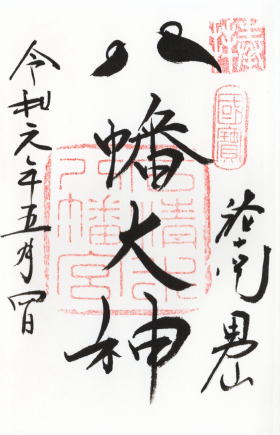 國寶
洛南男山
八幡大神
石清水
八幡宮
令和元年五月四日